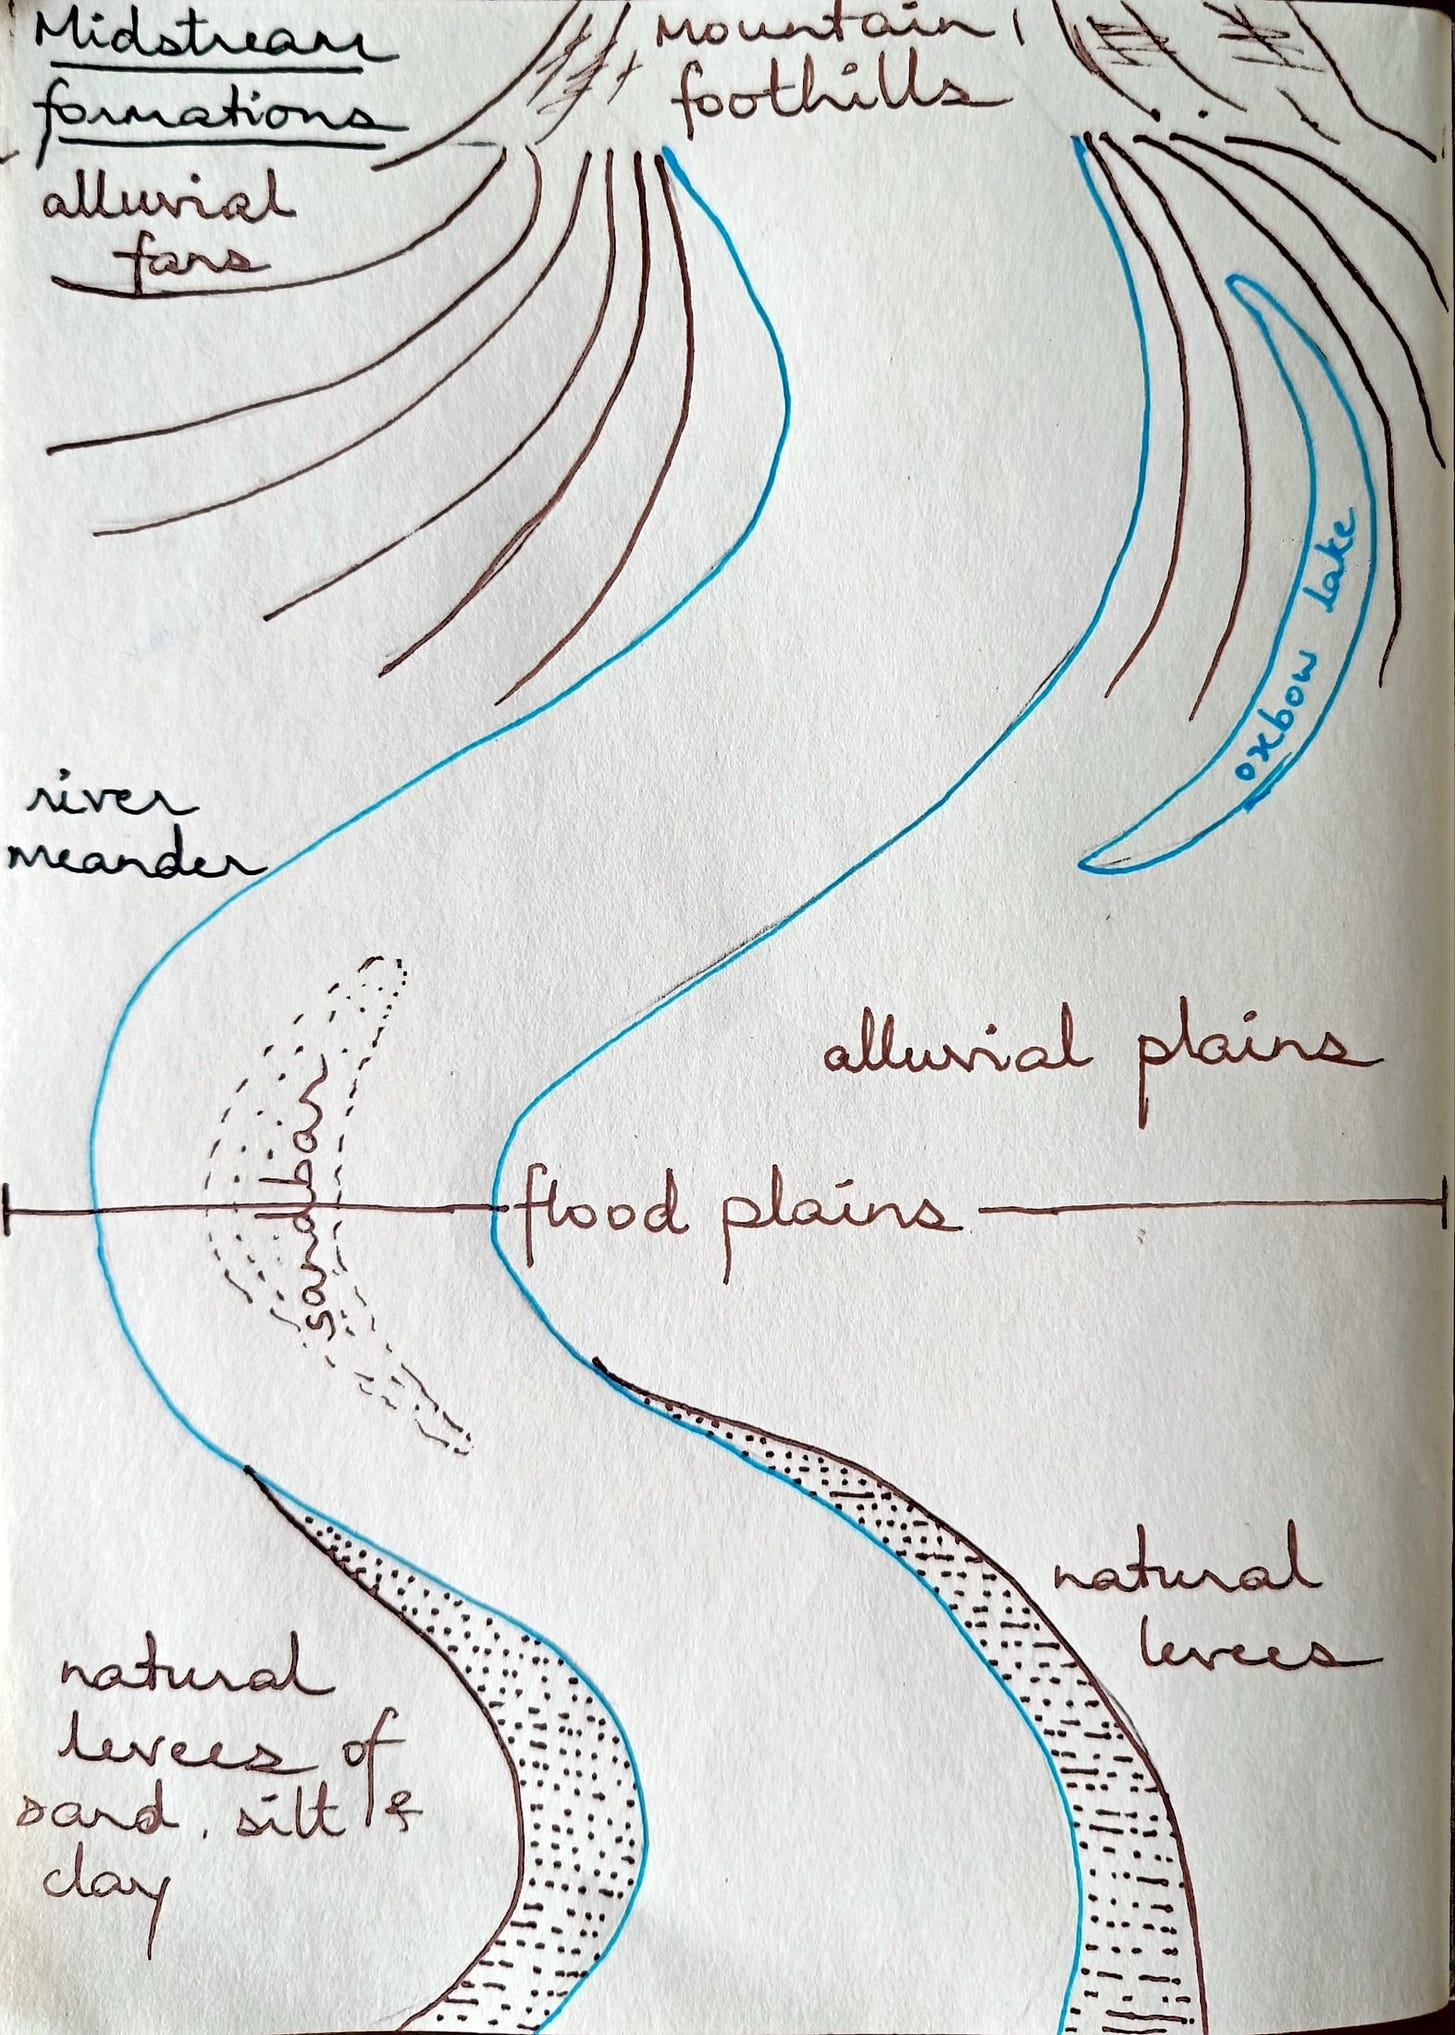 Midstream
formations
Mountain
foothills
alluvial
fans
oxbow lake
river
meander
alluvial plains
sand bar
flood plains
natural
levees
natural
levees of
sand, silt &
clay